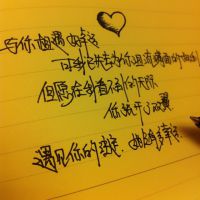 与你相遇 好幸运
可我已失去为你泪流满面的权利
但愿在我看不到的天际
你张开了双翼
遇见你的注定 她会有多幸运